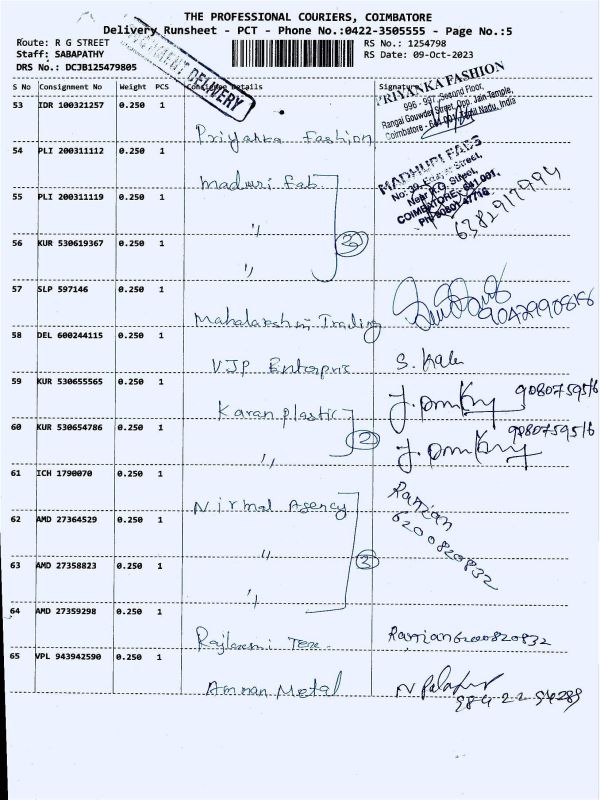 THE PROFESSIONAL COURIERS, COIMBATORE
Delivery Runsheet - PCT - Phone No.:0422-3505555 - Page No.:5
Route: R G STREET
RS No.: 1254798
Staff: SABAPATHY
RS Date: 09-Oct-2023
DRS No.: DCJB125479805
DELIVERY
S No Consignment No Weight PCS Consignee Details Signature
PRIYANKA FASHION
996 - 997, Second Floor,
Rangai Gowwder Street, Opp. Jain-Temple,
Coimbatore - 641 001, Tamil Nadu, India
53 IDR 100321257 0.250 1
Priyanka Fashion
54 PLI 200311112 0.250 1
Maduri Fab
MADHURI FABS
Street,
Near R.G. Street,
COIMBATORE - 641 001.
6382917994
55 PLI 200311119 0.250 1
"
56 KUR 530619367 0.250 1
"
57 SLP 597146 0.250 1
Mahalakshmi Trading
9042990818
58 DEL 600244115 0.250 1
VJP Enterprise
S. Kala
59 KUR 530655565 0.250 1
Karan plastic
9080759516
60 KUR 530654786 0.250 1
" 2
9080759516
61 ICH 1790070 0.250 1
Nirmal Agency
Ranjan
6200820832
62 AMD 27364529 0.250 1
"
63 AMD 27358823 0.250 1
"
64 AMD 27359298 0.250 1
Rajlaxmi Tex.
Ranjan 6200820832
65 VPL 943942590 0.250 1
Amman Metal
98422 94289